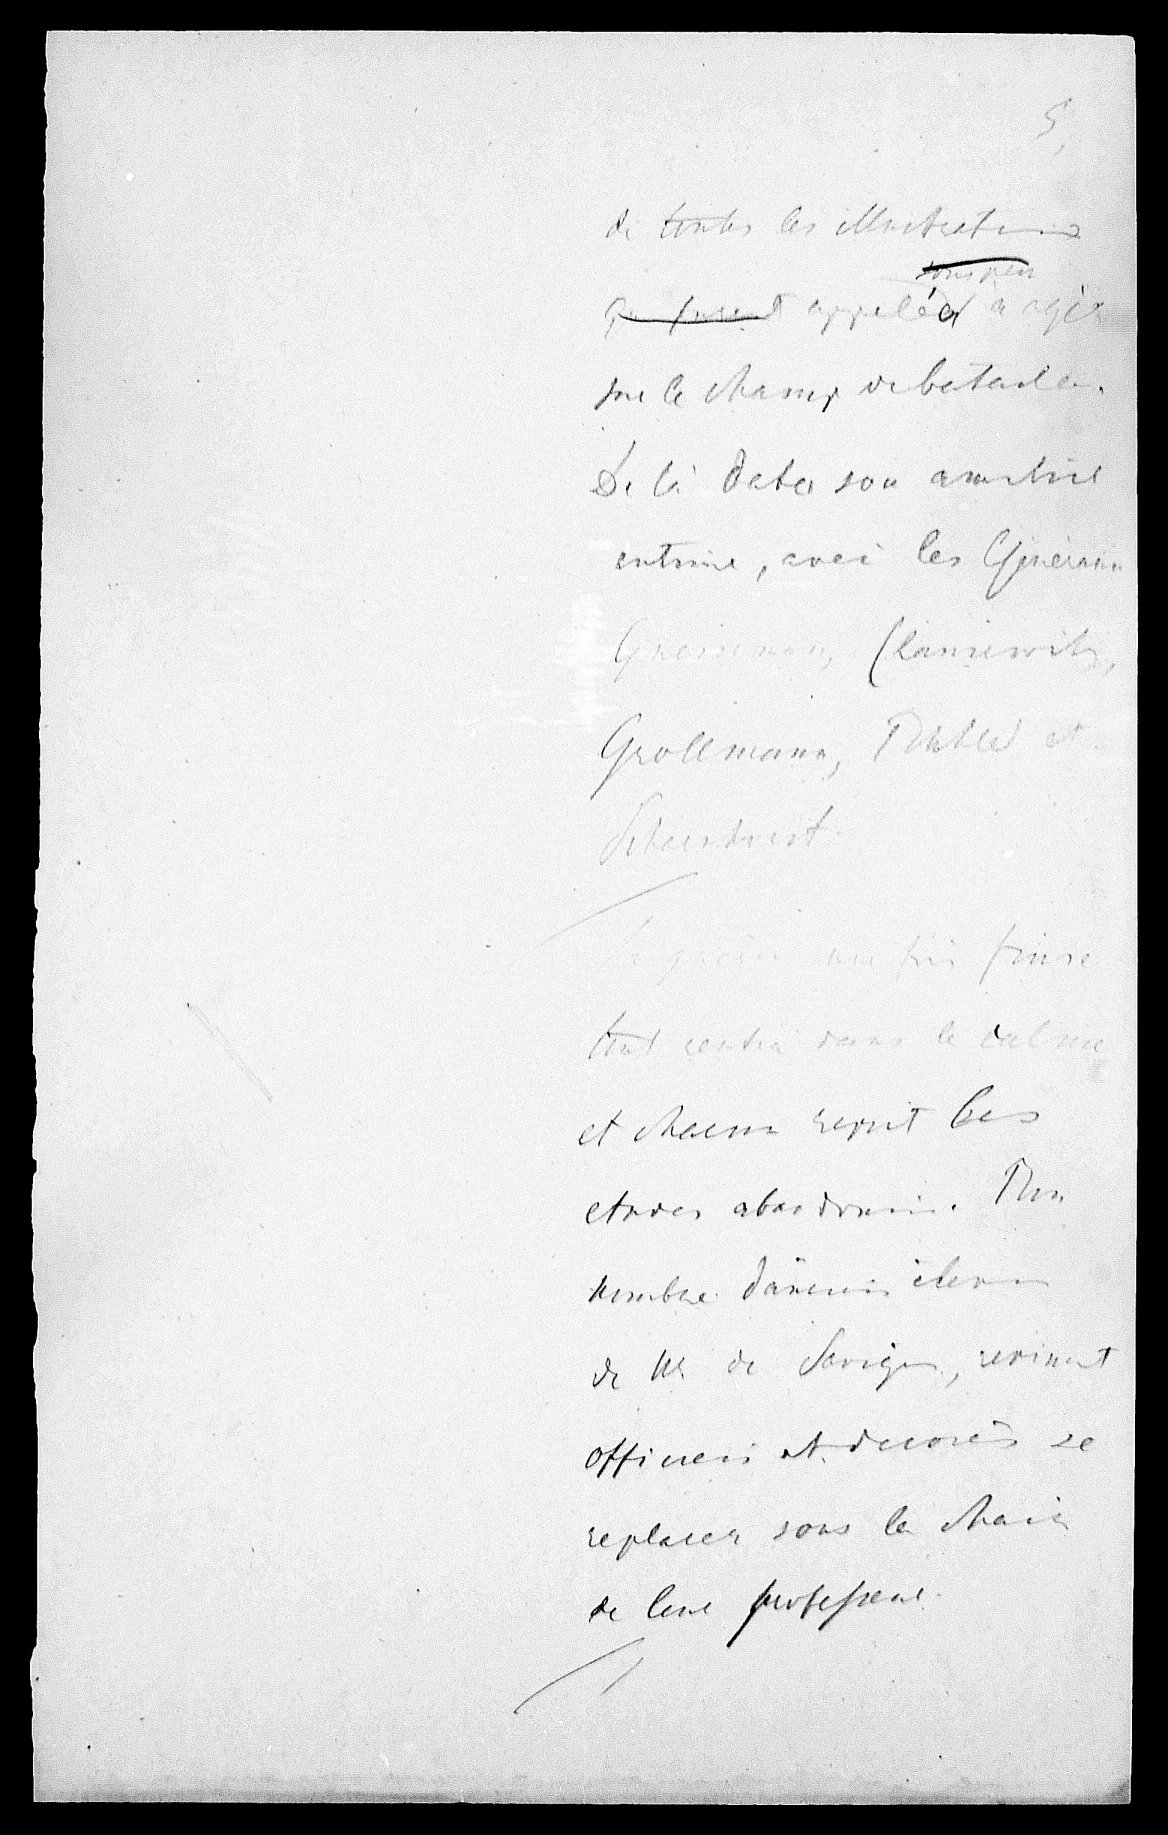 5,
de toutes les illustrations
sous peu
qui furent appelées à agir
sur le champ de bataille.
De là date son amitié
intime, avec les Généraux
Gneisenau, Clausewitz,
Grollmann, Pfuhl et
Scharnhorst.
La guerre une fois finie
tout rentra dans le calme
et chacun reprit les
etudes abandonnées. Bon
nombre d'anciens élèves
de Mr. de Savigny, revinrent
officiers et decorés se
replacer sous la chaire
de leur professeur.